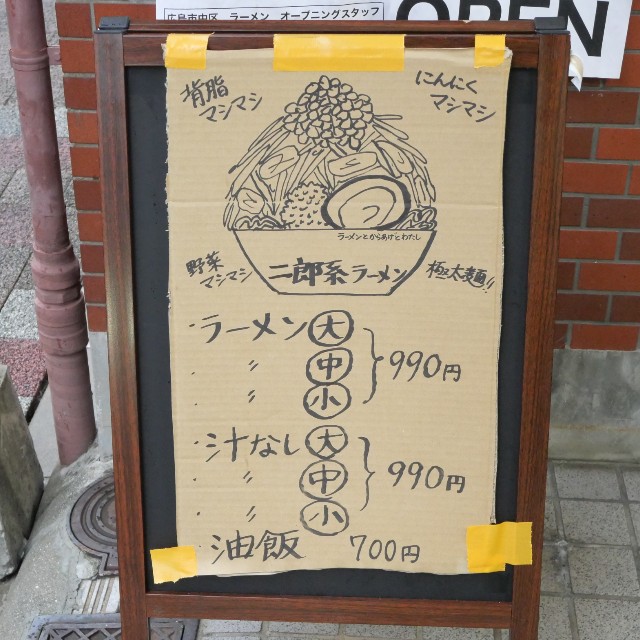 広島市中区 ラーメン オープニングスタッフ
OPEN
背脂
マシマシ
にんにく
マシマシ
ラーメンとからあげとわたし
野菜
マシマシ
二郎系ラーメン
極太麺!!
・ラーメン 大
・ 〃 中
・ 〃 小
990円
・汁なし 大
・ 〃 中
・ 〃 小
990円
・油飯 700円